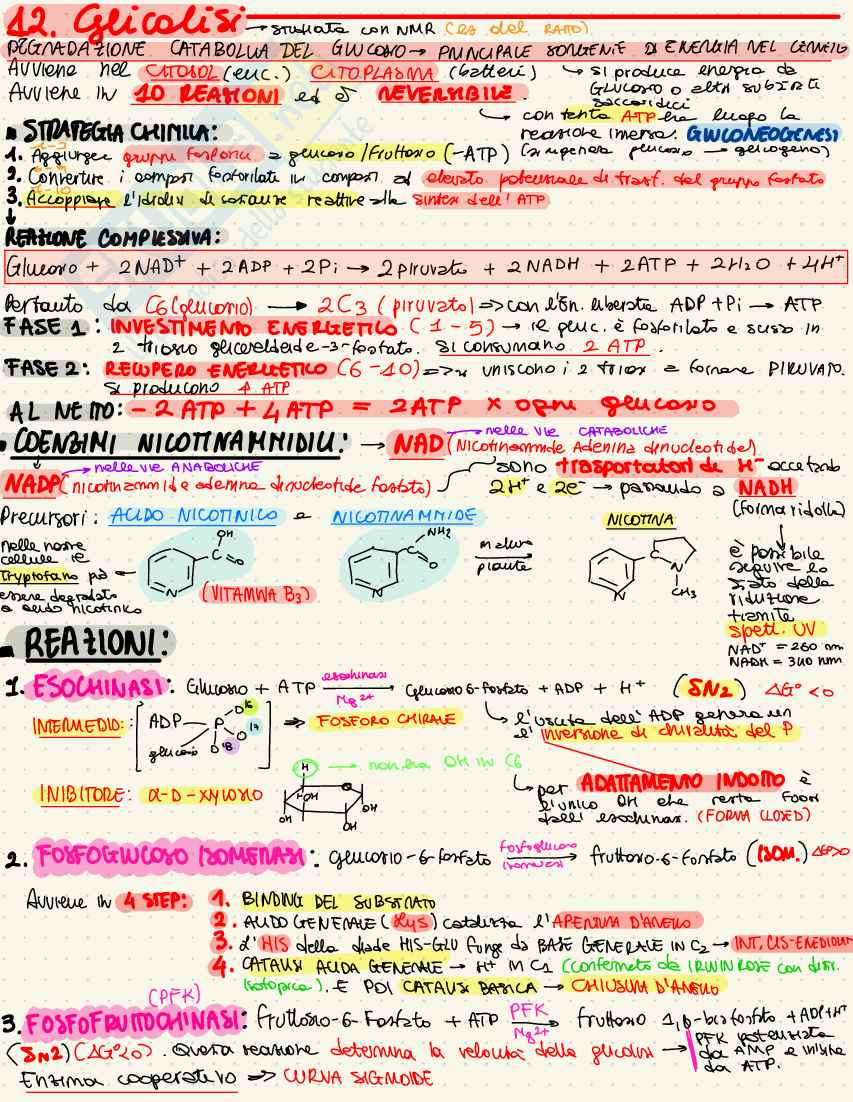 12. Glicolisi → studiata con NMR (es del RATTO)
DEGRADAZIONE CATABOLICA DEL GLUCOSIO → PRINCIPALE SORGENTE DI ENERGIA NEL CERVELLO
Avviene nel CITOSOL (euc.) CITOPLASMA (batteri) → si produce energia da
Avviene in 10 REAZIONI ed è REVERSIBILE. GLUCOSIO o altri substrati
saccaridici
→ con tanta ATP ha luogo la
reazione inversa: GLUCONEOGENESI
STRATEGIA CHIMICA:
1. Aggiungere gruppi fosforici a glucosio/fruttosio (-ATP) (si rigenera glucosio → glicogeno)
2. Convertire i composti fosforilati in composti ad elevato potenziale di trasf. del gruppo fosfato
3. Accoppiare l'idrolisi di sostanze reattive alla sintesi dell'ATP
↓
REAZIONE COMPLESSIVA:
Glucosio + 2NAD+ + 2ADP + 2Pi → 2 piruvato + 2NADH + 2ATP + 2H2O + 4H+
Pertanto da C6 (glucosio) → 2C3 (piruvato) => con l'En. liberata ADP + Pi → ATP
FASE 1: INVESTIMENTO ENERGETICO (1-5) → il gluc. è fosforilato e scisso in
2 trioso gliceraldeide-3-fosfato. Si consumano 2 ATP.
FASE 2: RECUPERO ENERGETICO (6-10) => si uniscono i 2 triosi a formare PIRUVATO.
Si producono 4 ATP
AL NETTO: -2 ATP + 4 ATP = 2 ATP x ogni glucosio
COENZIMI NICOTINAMMIDICI: → NAD (Nicotinammide Adenina dinucleotide)
nelle vie CATABOLICHE
nelle vie ANABOLICHE
NADP (nicotinammide adenina dinucleotide fosfato)
sono trasportatori di H- accettano
2H+ e 2e- → passando a NADH
(forma ridotta)
Precursori: ACIDO NICOTINICO e NICOTINAMMIDE
NICOTINA
nelle nostre
cellule il
Tryptofano può
essere degradato
a acido nicotinico
OH
C
O
N
(VITAMINA B3)
NH2
C
O
N
piante
N
N
CH3
è possibile
seguire lo
stato della
riduzione
tramite
spett. UV
NAD+ = 260 nm
NADH = 340 nm
REAZIONI:
1. ESOCHINASI: Glucosio + ATP esochinasi Mg2+ → Glucosio 6-fosfato + ADP + H+ (SN2) ΔG° <0
INTERMEDIO: [ADP P O16 O17 O18 glucosio] => FOSFORO CHIRALE
→ l'uscita dell'ADP genera un
l'inversione di chiralità del P
H → non ha OH in C6
INIBITORE: α-D-xylosio
H
OH
OH
OH
OH
→ per ADATTAMENTO INDOTTO è
l'unico OH che resta fuori
dall'esochinasi. (FORMA CLOSED)
2. FOSFOGLUCOSO ISOMERASI: glucosio-6-fosfato fosfogluco isomerasi → fruttosio-6-fosfato (ISOM.) ΔG>0
Avviene in 4 STEP: 1. BINDING DEL SUBSTRATO
2. ACIDO GENERALE (Lys) catalizza l'APERTURA D'ANELLO
3. L'HIS della diade HIS-GLU funge da BASE GENERALE IN C2 → INT. CIS-ENEDIOLICO
4. CATALISI ACIDA GENERALE → H+ IN C1 (confermato da IRWIN ROSE con distr.
isotopica). E POI CATALISI BASICA → CHIUSURA D'ANELLO
(PFK)
3. FOSFOFRUTTOCHINASI: fruttosio-6-Fosfato + ATP PFK Mg2+ → fruttosio 1,6-bisfosfato + ADP + H+
(SN2) (ΔG°<0). Questa reazione determina la velocità della glicolisi → PFK potenziata
da AMP e inibita
da ATP.
Enzima cooperativo => CURVA SIGMOIDE